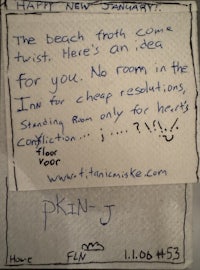 HAPPY NEW JANUARY!
The beach froth come
twist. Here's an idea
for you. No room in the
Inn for cheap resolutions,
Standing Room only for heart's
floor
voor
www.titanicmiske.com
PKIN-J
Home FLN 1.1.06 #53